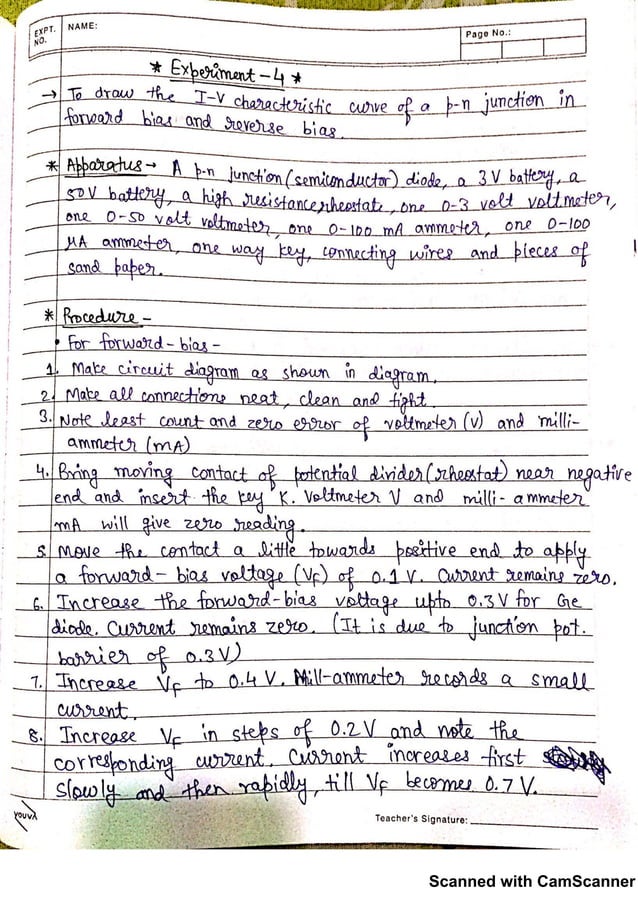 EXPT. NO.
NAME:
Page No.:
* Experiment - 4 *
→ To draw the I-V characteristic curve of a p-n junction in
forward bias and reverse bias.
* Apparatus → A p-n junction (semiconductor) diode, a 3V battery, a
50V battery, a high resistance rheostat, one 0-3 volt voltmeter,
one 0-50 volt voltmeter, one 0-100 mA ammeter, one 0-100
μA ammeter, one way key, connecting wires and pieces of
sand paper.
* Procedure -
• For forward-bias -
1. Make circuit diagram as shown in diagram.
2. Make all connections neat, clean and tight.
3. Note least count and zero error of voltmeter (v) and milli-
ammeter (mA)
4. Bring moving contact of potential divider (rheostat) near negative
end and insert the key K. Voltmeter V and milli-ammeter
mA will give zero reading.
5. Move the contact a little towards positive end to apply
a forward-bias voltage (VF) of 0.1 V. Current remains zero.
6. Increase the forward-bias voltage upto 0.3 V for Ge
diode. Current remains zero. (It is due to junction pot.
barrier of 0.3 V)
7. Increase VF to 0.4 V. Mill-ammeter records a small
current.
8. Increase VF in steps of 0.2 V and note the
corresponding current. Current increases first
slowly and then rapidly, till VF becomes 0.7 V.
youvA
Teacher's Signature:
Scanned with CamScanner